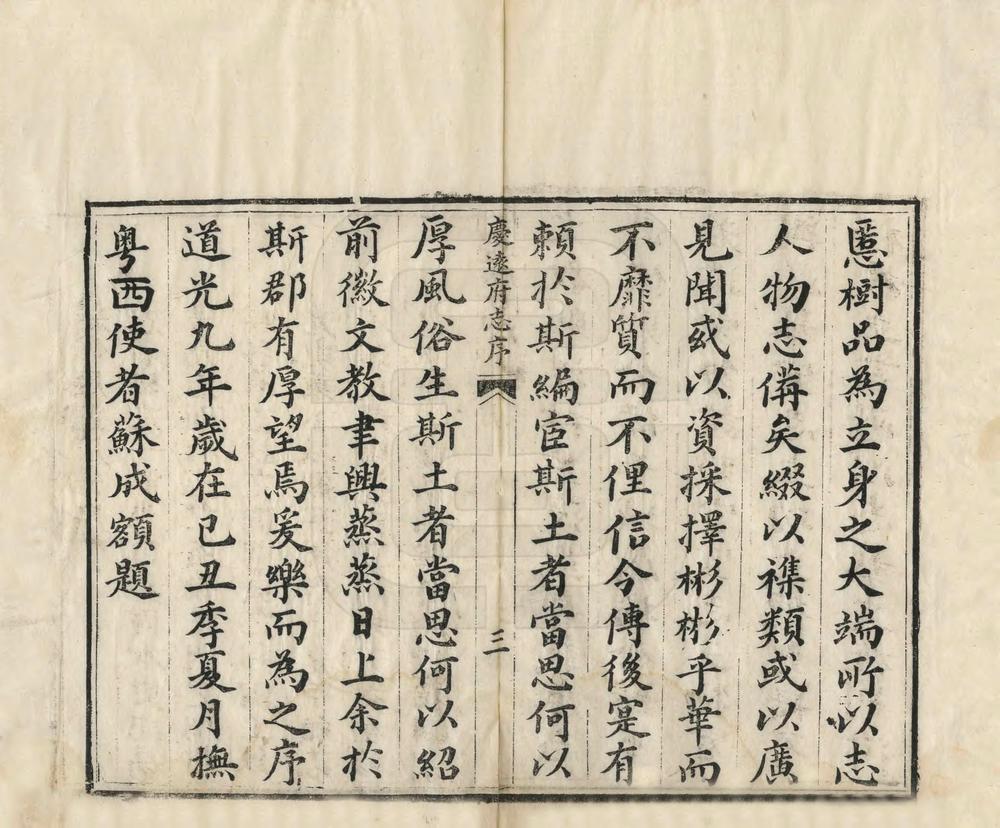 慝樹品為立身之大端所以志
人物志備矣綴以襍類或以廣
見聞或以資採擇彬彬乎華而
不靡質而不俚信今傳後寔有
頼於斯編宦斯土者當思何以
慶遠府志序
三
厚風俗生斯土者當思何以紹
前徽文教聿興蒸蒸日上余於
斯郡有厚望焉爰樂而為之序
道光九年歲在己丑季夏月撫
粤西使者蘇成額題